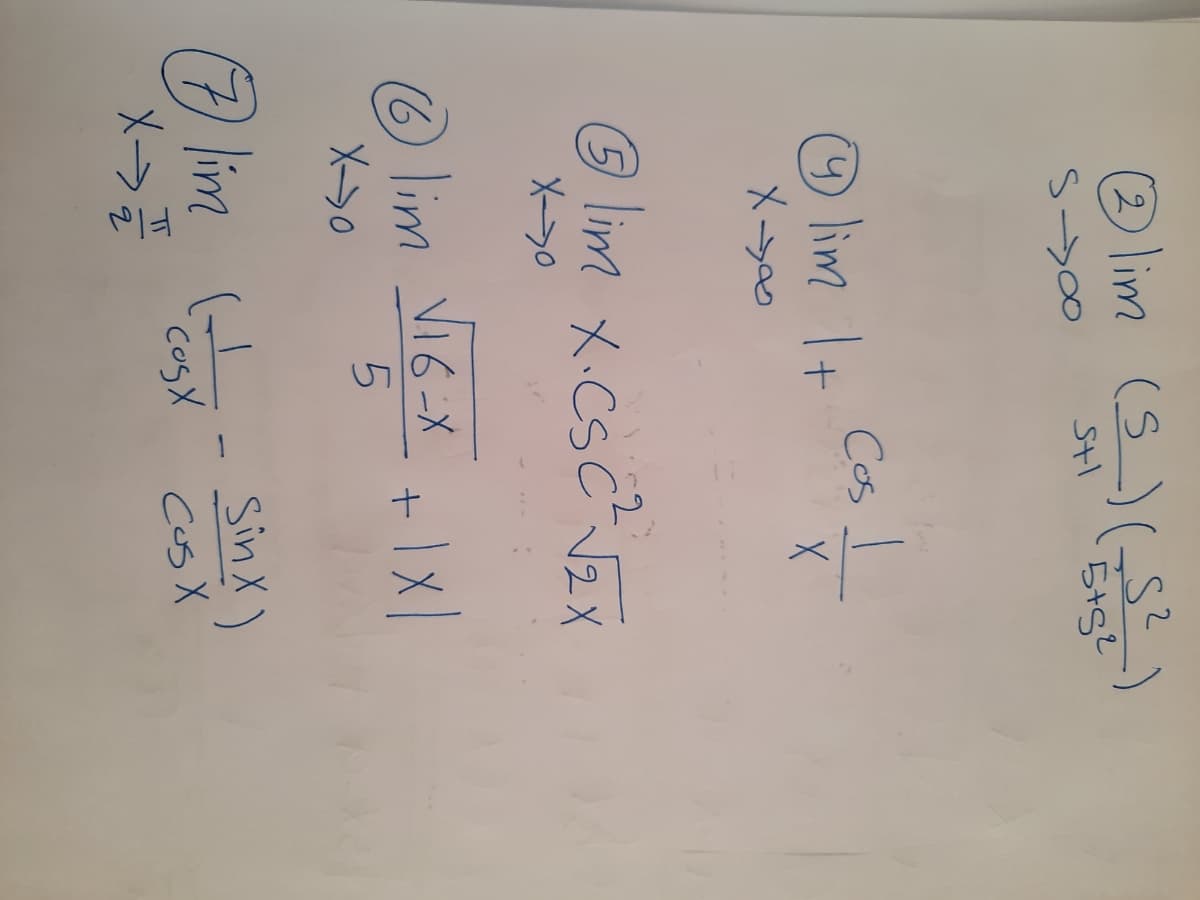 ② lim s→∞ (s/s+1)(s²/5+s²)
④ lim x→∞ 1+ Cos 1/x
⑤ lim x→0 x.csc²√2x
⑥ lim x→0 √16-x/5 + |x|
⑦ lim x→π/2 (1/cosx - Sinx/Cosx)